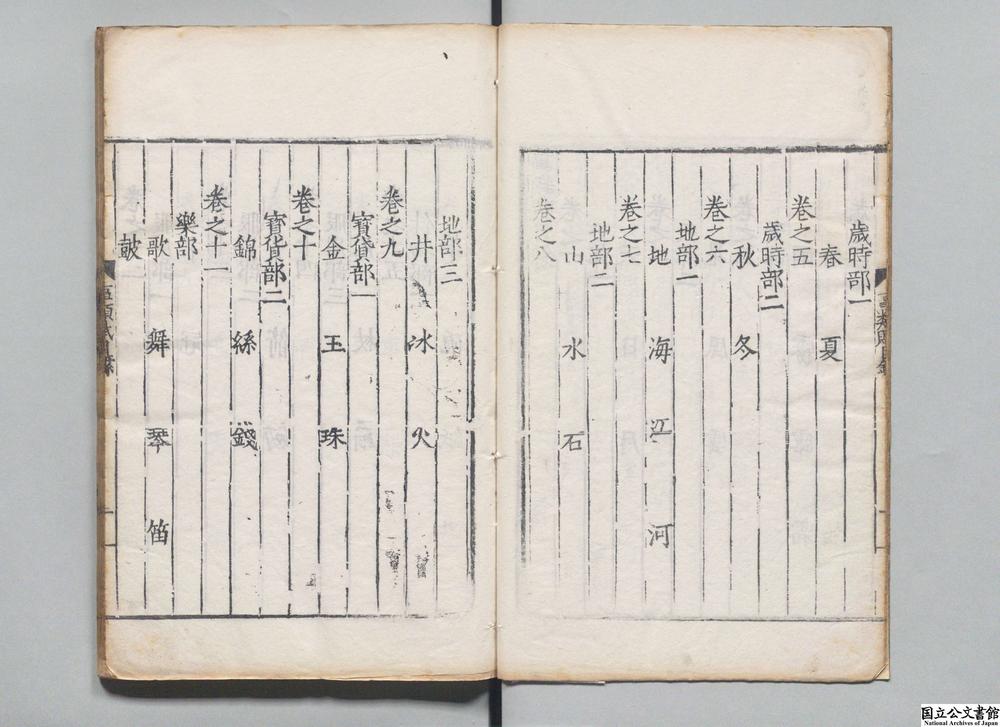 歲時部一
春 夏
卷之五
歲時部二
秋 冬
卷之六
地部一
地 海 江 河
卷之七
地部二
山 水 石
卷之八
地部三
井 冰 火
卷之九
寶貨部一
金 玉 珠
卷之十
寶貨部二
錦 絲 錢
卷之十一
樂部
歌 舞 琴 笛
鼓
国立公文書館
National Archives of Japan